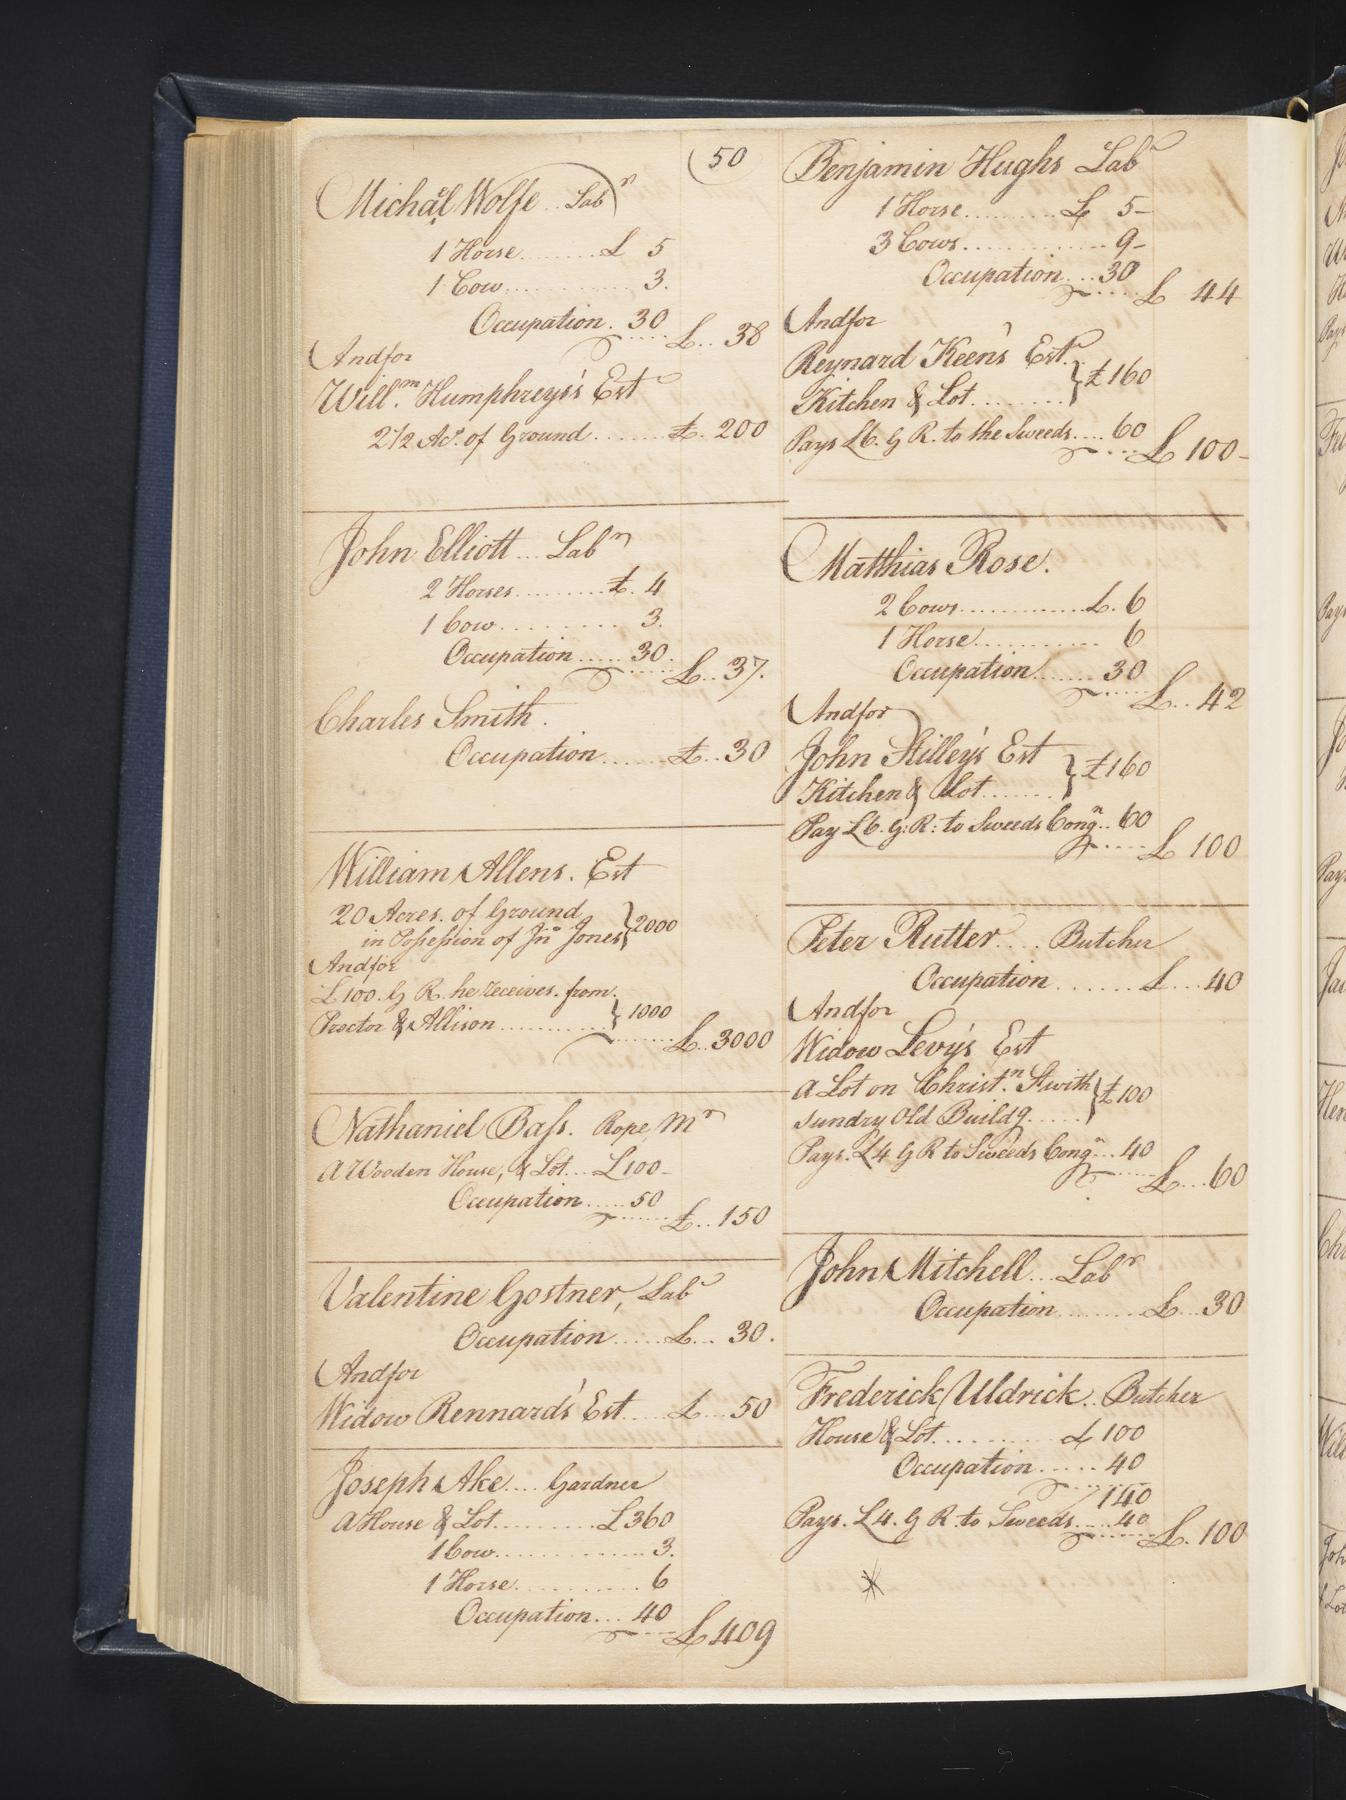 50
Michael Wolfe .. Labr
1 Horse ........ £ 5
1 Cow ............ 3.
Occupation . 30 £ .. 38
Andfor
Willm. Humphreys's Est
2 1/2 Acs. of Ground ....... £. 200
John Elliott ... Labr
2 Horses ......... £. 4
1 Cow ......... 3.
Occupation ..... 30. £ .. 37.
Charles Smith .
Occupation ....... £ .. 30
William Allens. Est
20 Acres. of Ground
in Possession of Jno Jones } 2000
Andfor
£100. G R. he receives. from.
Proctor & Allison ............ } 1000 £ .. 3000
Nathaniel Bass. Rope Mr
A Wooden House, & Lot ... £100 -
Occupation ..... 50 £ .. 150
Valentine Gostner, Labr
Occupation ..... £ ... 30.
Andfor
Widow Rennard's Est .... £ ... 50
Joseph Ake .... Gardner
A House & Lot .......... £360
1 Cow .............. 3.
1 Horse .......... 6
Occupation ... 40 £ 409
Benjamin Hughs Labr
1 Horse ......... £ 5 -
3 Cows ............ 9 -
Occupation ... 30 £ 44
Andfor
Reynard Keen's Est.
Kitchen & Lot ......... } £160
Pays £6. G R. to the Sweeds .... 60 £ 100 -
Matthias Rose.
2 Cows ............ £. 6
1 Horse ........... 6
Occupation ...... 30 £ .. 42
Andfor
John Stilley's Est
Kitchen & Lot ....... } £160
Pay £6. G: R: to Sweeds Congn .. 60 £ 100
Peter Rutter .... Butcher
Occupation ....... £ ... 40
Andfor
Widow Levy's Est
A Lot on Christn. St with
sundry Old Buildg ..... } £100
Pays. £4 G R to Sweeds Congn ... 40 £ ... 60
John Mitchell ... Labr
Occupation ........ £ ... 30
Frederick Uldrick .. Butcher
House & Lot ......... £ 100
Occupation ..... 40
140
Pays. £4. G R. to Sweeds .... 40 £. 100